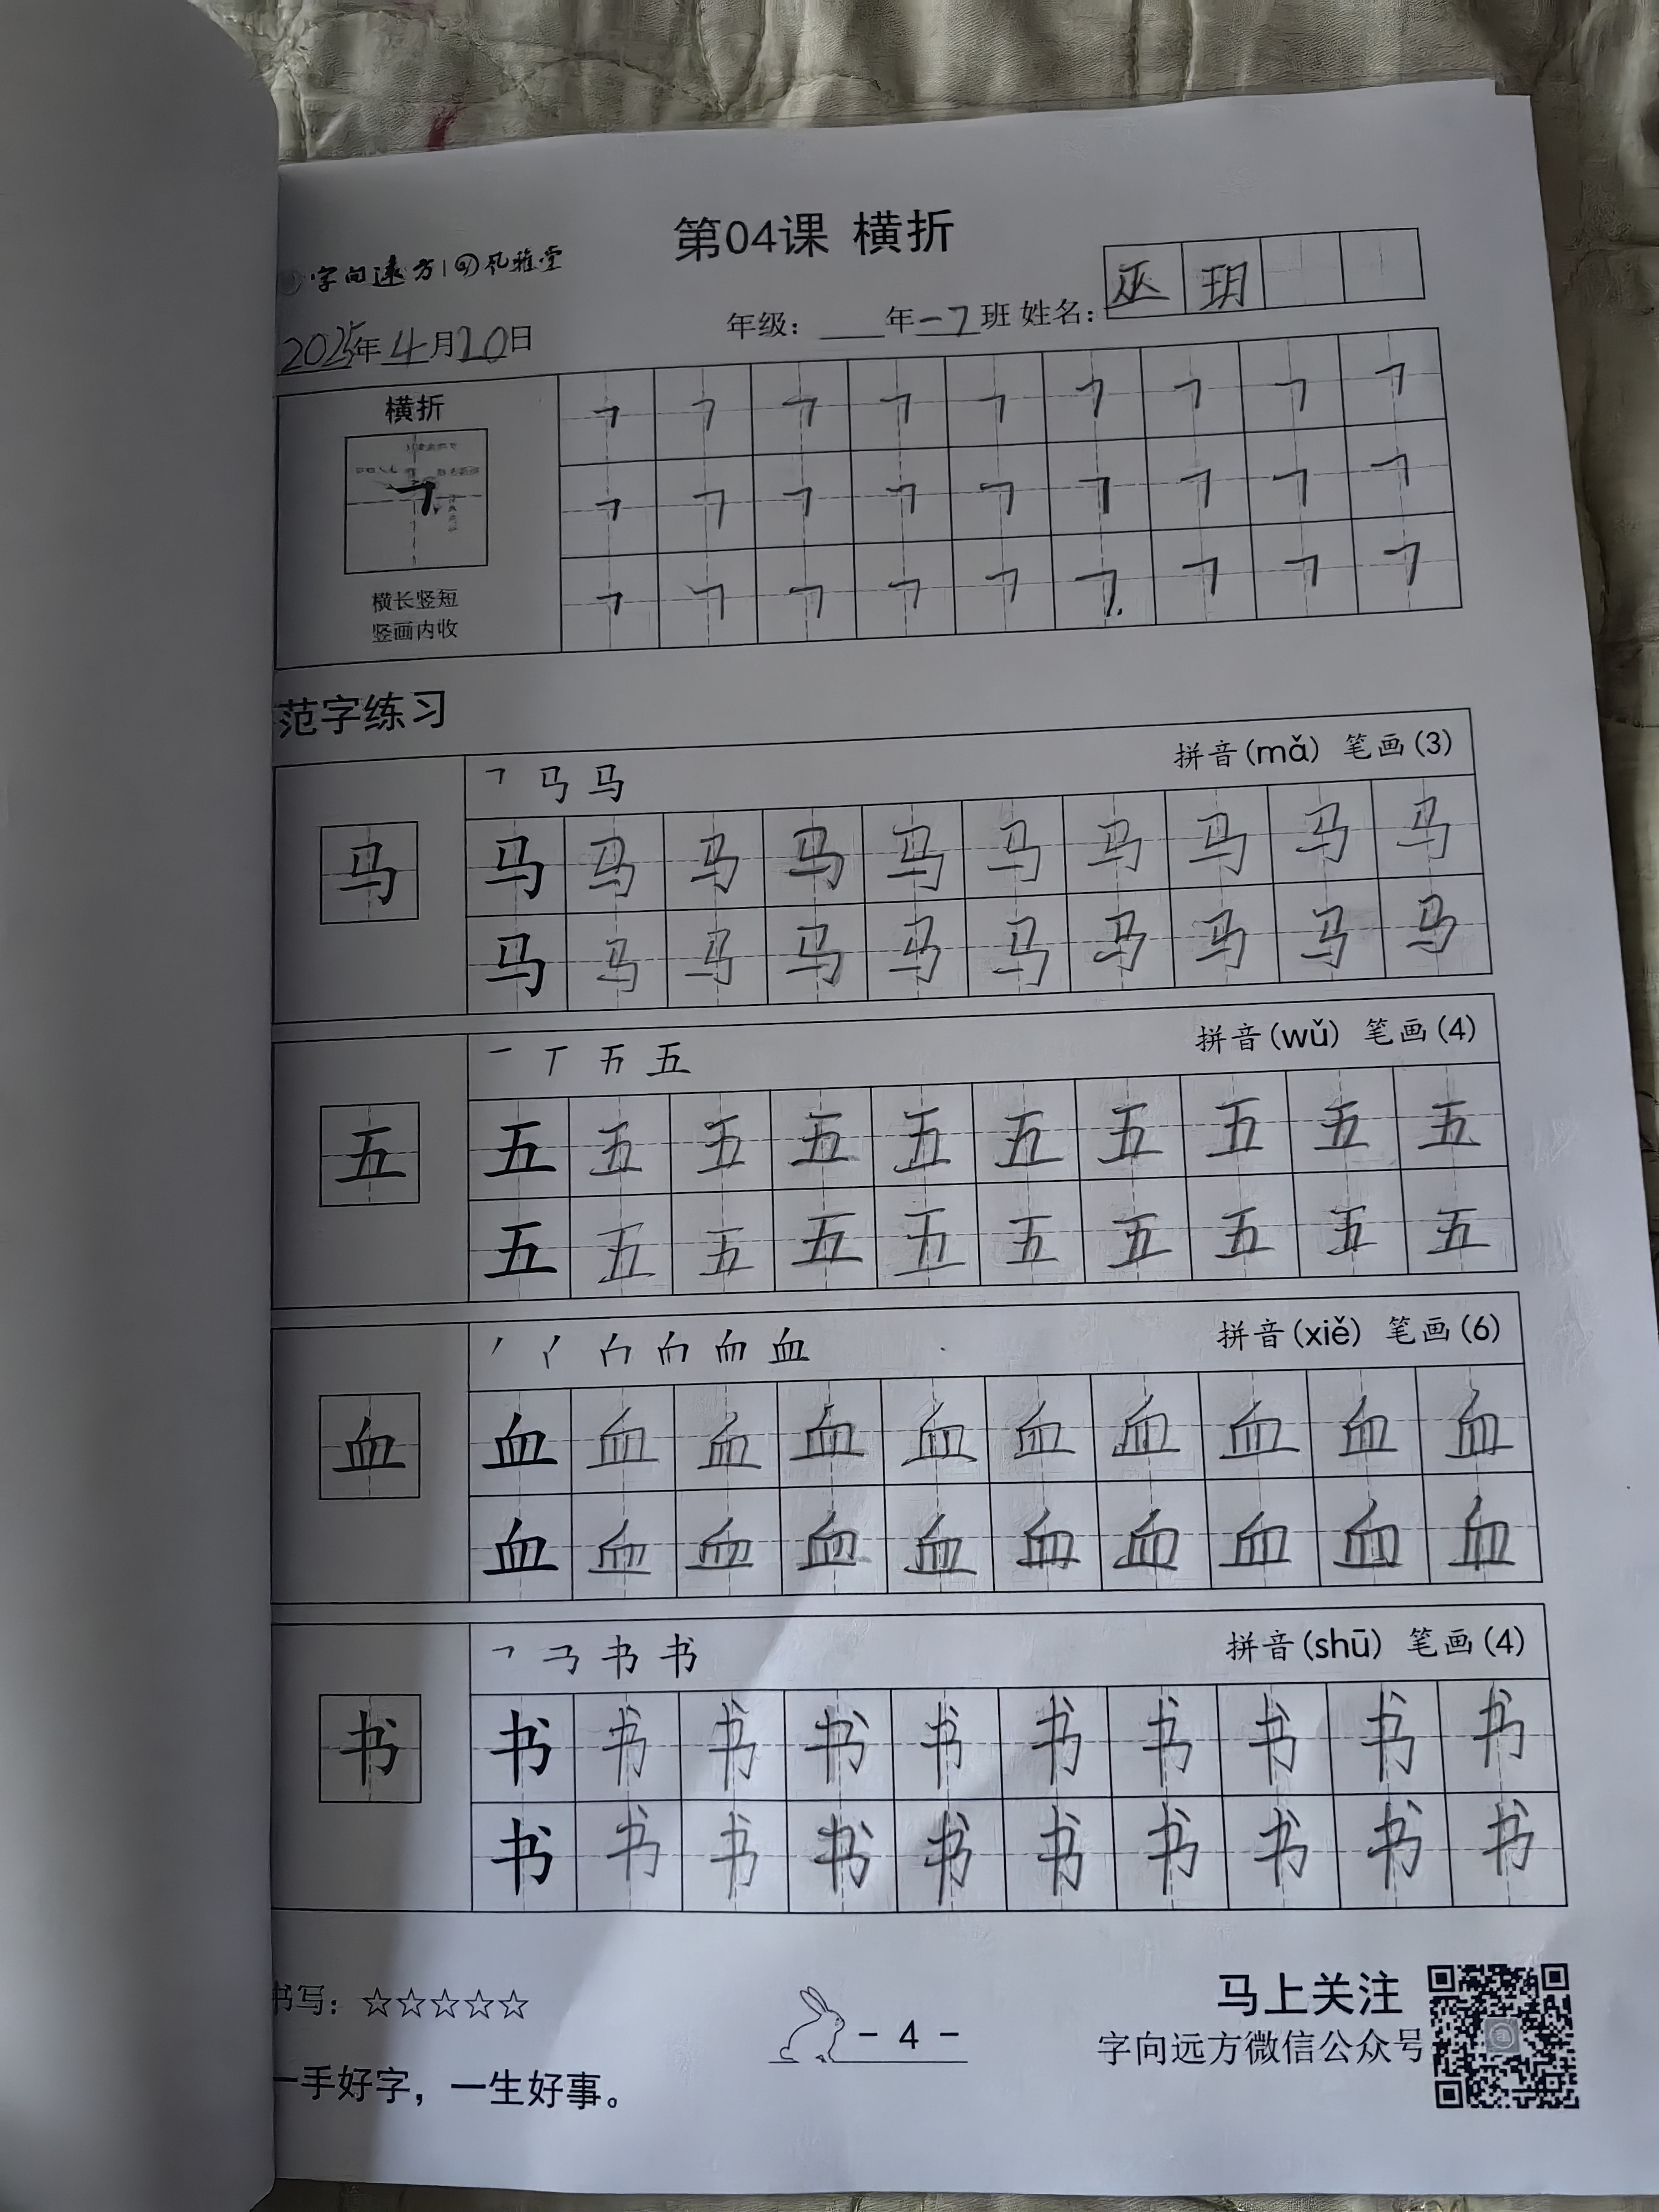 第04课 横折
字向远方 | 孔雅堂
2025年 4月20日 年级：___年一7班 姓名：巫玥
横折
横长竖短
竖画内收
㇕㇕㇕㇕㇕㇕㇕㇕㇕
㇕㇕㇕㇕㇕㇕㇕㇕㇕
㇕㇕㇕㇕㇕㇕㇕㇕㇕
范字练习
拼音(mǎ) 笔画(3)
马
马马马马马马马马马马
马马马马马马马马马马
拼音(wǔ) 笔画(4)
五
五五五五五五五五五五
五五五五五五五五五五
拼音(xiě) 笔画(6)
血
血血血血血血血血血血
血血血血血血血血血血
拼音(shū) 笔画(4)
书
书书书书书书书书书书
书书书书书书书书书书
书写：☆☆☆☆☆
- 4 -
马上关注
字向远方微信公众号
一手好字，一生好事。